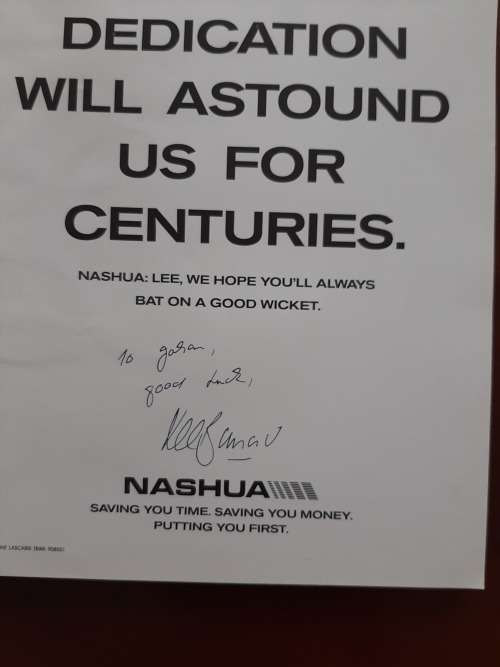 DEDICATION
WILL ASTOUND
US FOR
CENTURIES.
NASHUA: LEE, WE HOPE YOU'LL ALWAYS
BAT ON A GOOD WICKET.
To
good Luck,
NASHUA
SAVING YOU TIME. SAVING YOU MONEY.
PUTTING YOU FIRST.